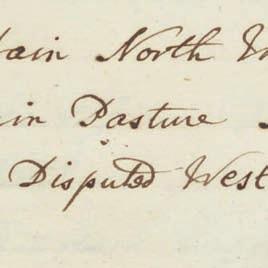 tain North
in Pasture
Disputed West